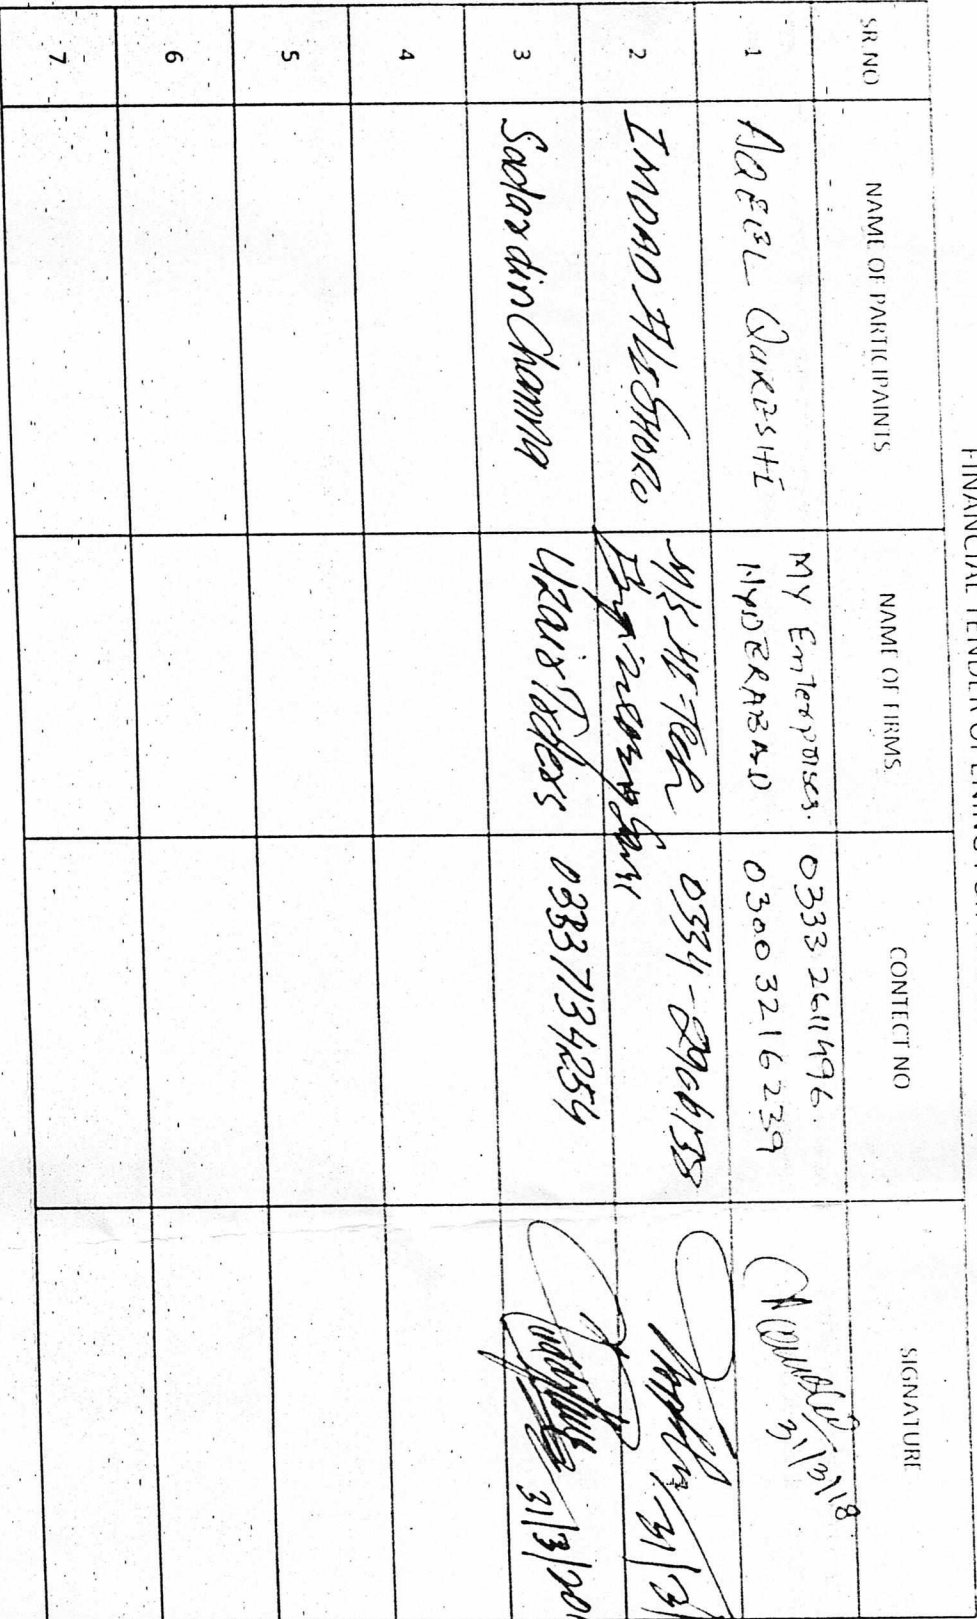 FINANCIAL TENDER OPENING
SR NO NAME OF PARTICIPAINTS NAME OF FIRMS. CONTECT NO SIGNATURE
1 AQEEL QURESHI MY Enterprises. 0333 2611496.
HYDERABAD 03003216239
31/3/18
2 IMDAD ALI SHORO M/S HI-Tech 0334-
Engineering
31/3/
3 Sadaruddin Channa Uzair Traders 03337134254
31/3/20
4
5
6
7